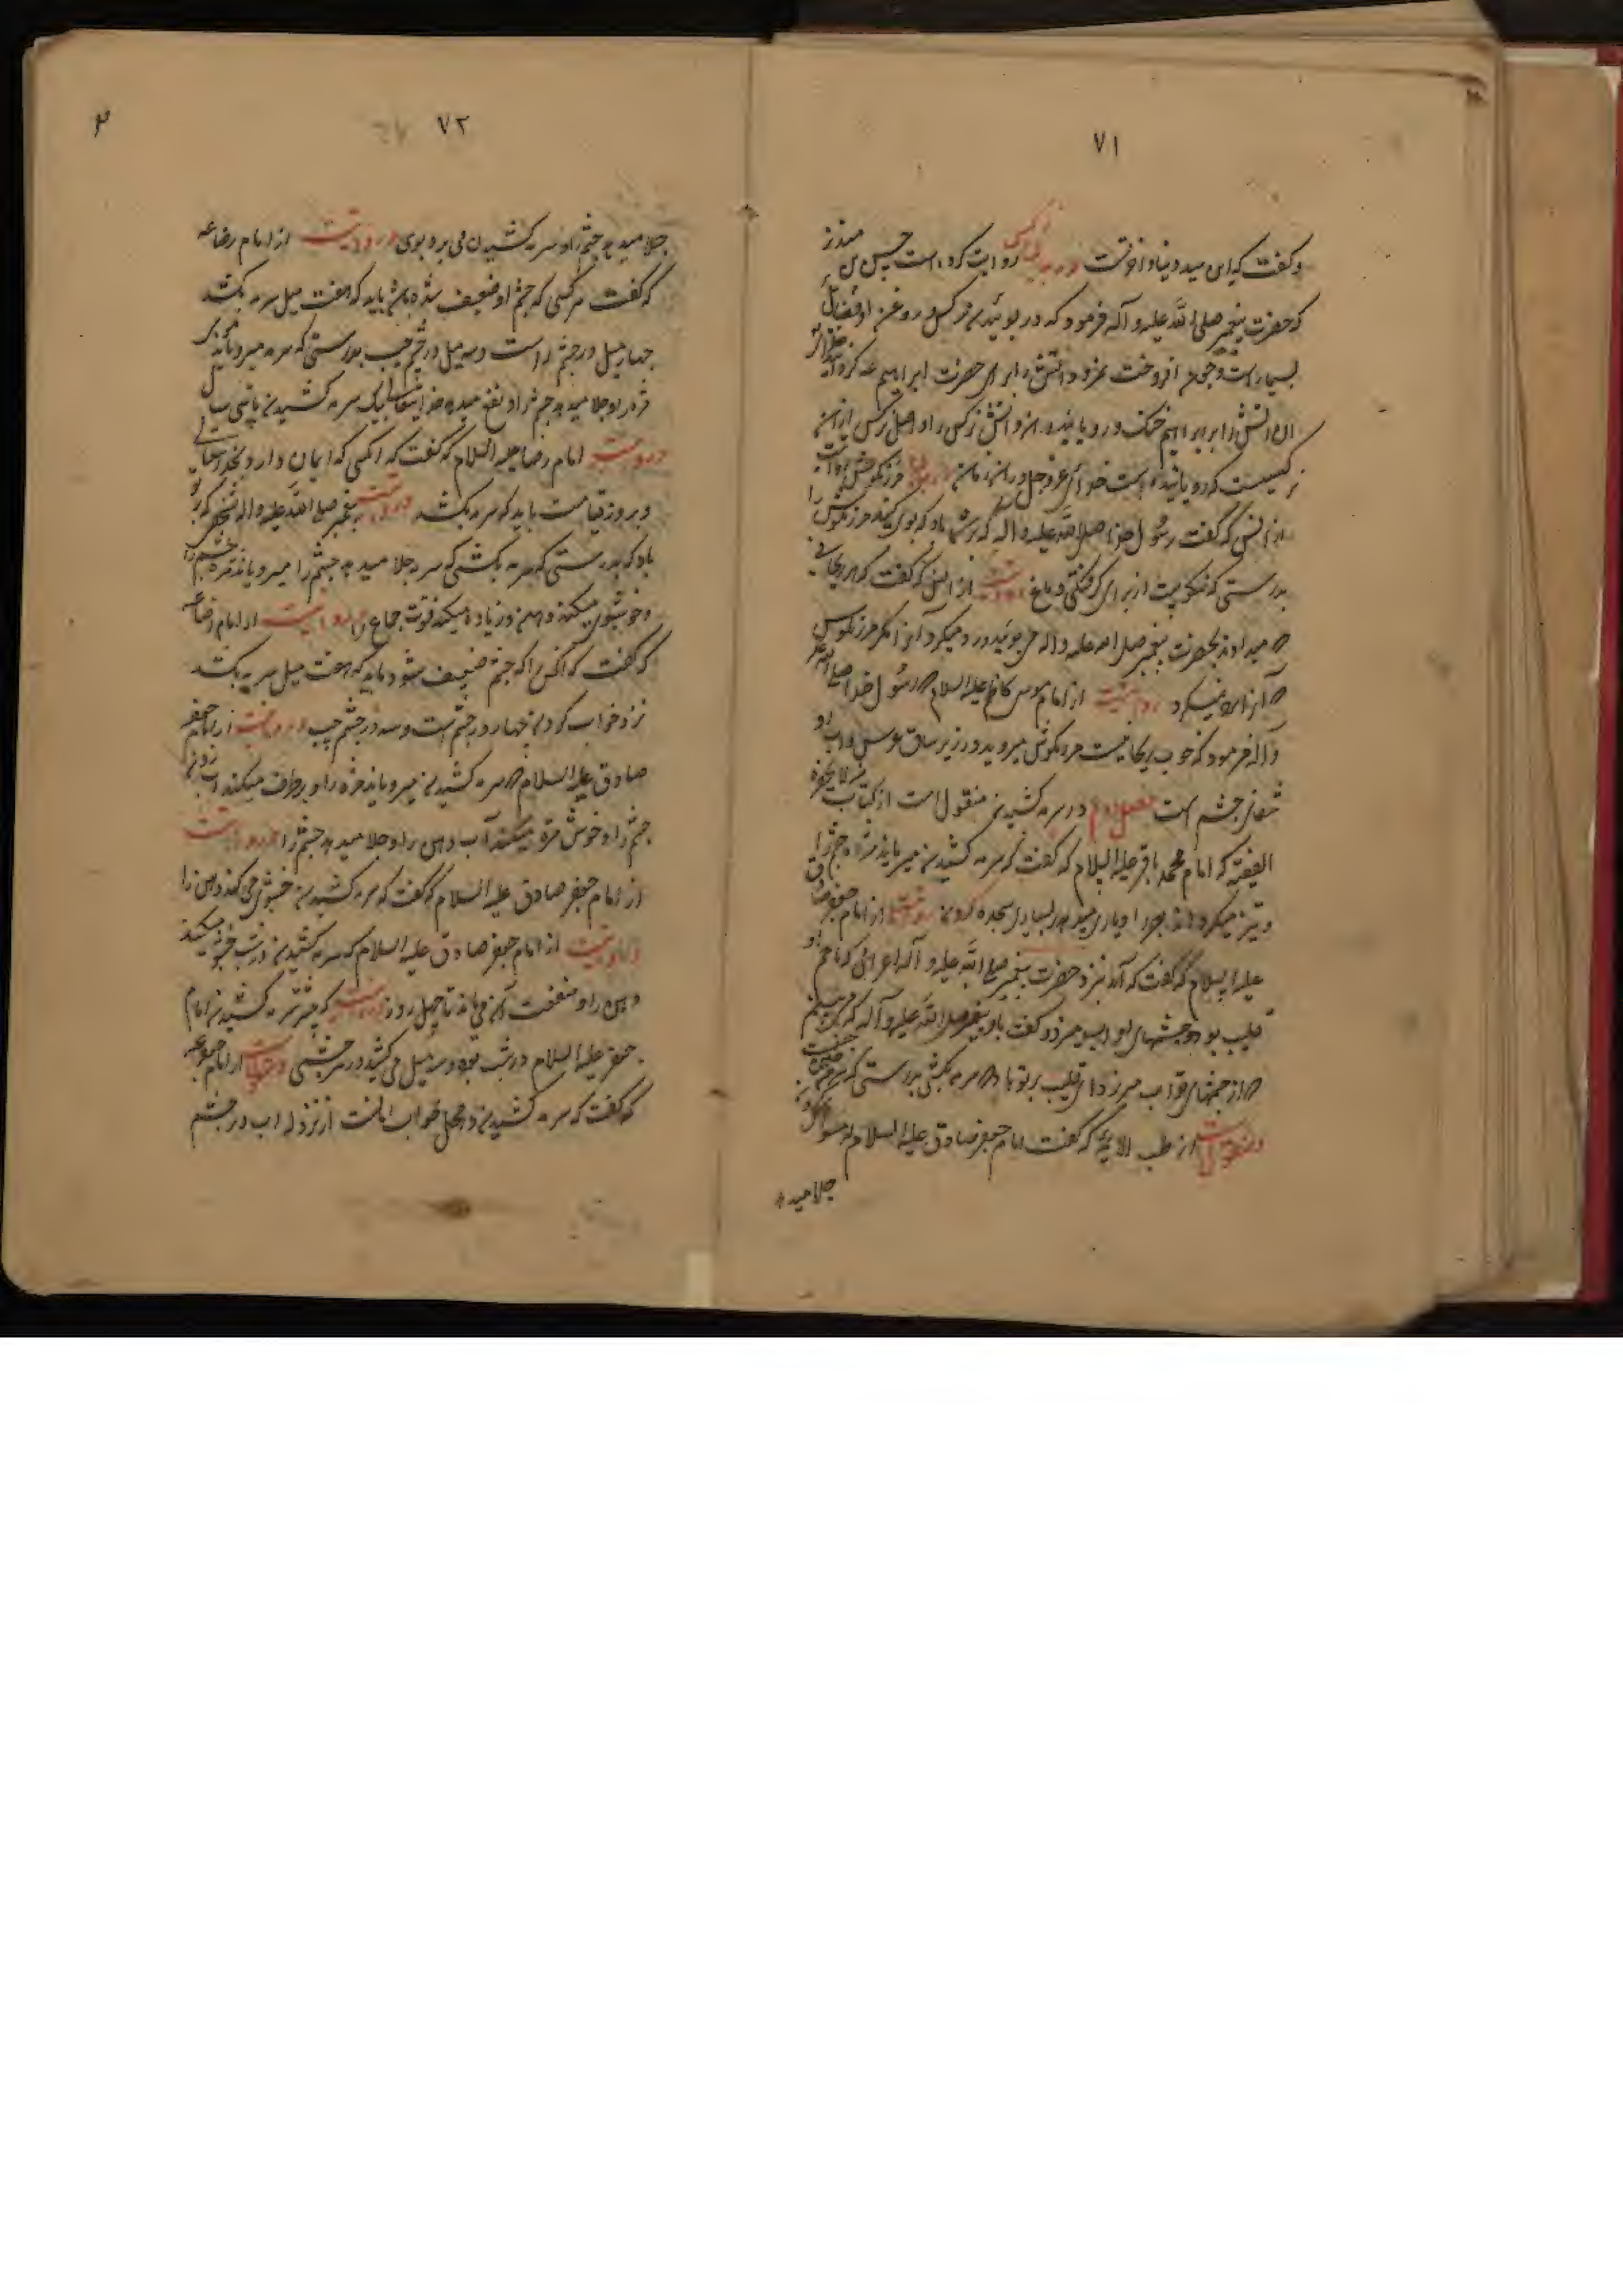 ٧١
و گفت که این سید دنیا و آخرتست در نرگس روایت کرده است حسن بن منذر
که حضرت پیغمبر صلی الله علیه و آله فرمود که در بوئیدن نرگس و روغن او فضایل
بسیار است و چون افروخت نمرود آتش را برای حضرت ابراهیم عه کردانید خدای
آن آتش را بر ابراهیم خنک و رویانید در آن آتش نرگس را و اصل نرگس از این
نرگسیست که رویانیده است خدای عز و جل در آن زمان مرزنکوش روایت
از انس که گفت رسول خدا صلی الله علیه و آله که بر شما باد که بوی کنید مرزنکوش را
بدرستی که نیکوست از برای گرفتگی دماغ روایت از انس که گفت که هر ریحانی
که میدادند بحضرت پیغمبر صلی الله علیه و آله می بوئید و رد میکرد آنرا مگر مرزنکوش
که آنرا رد نمیکرد روایت از امام موسی کاظم علیه السلام که رسول خدا صلی الله علیه
و آله فرمود که خوب ریحانیست مرزنکوش میروید در زیر ساق عرش و آب او
شفای چشم است فصل دوم در سرمه کشیدن منقول است از کتاب من لا یحضره
الفقیه که امام محمد باقر علیه السلام که گفت که سرمه کشیدن میرویاند مژه چشم را
و تیز میکرداند بصر را و یاری میدهد بسیاری سجده کردن روایت از امام جعفر صادق
علیه السلام که گفت که آمد نزد حضرت پیغمبر صلی الله علیه و آله اعرابی که نام او
قلیب بود و چشمهای او آب میزد و گفت باو پیغمبر صلی الله علیه و آله که می بینم
که از چشمهای تو آب میرزد ای قلیب بر تو باد که سرمه بکشی بدرستی که سرمه
و منقولست از طب الائمه که گفت امام جعفر صادق علیه السلام که مسواک کردن
جلا میدهد
٧٢
جلا میدهد چشم را و سرمه کشیدن می برد بوی در روایت از امام رضا عه
که گفت هر کسی که چشم او ضعیف شده باشد باید که هفت میل سرمه بکشد
چهار میل در چشم راست و سه میل در چشم چپ بدرستی که سرمه میرویاند
مژه را و جلا میدهد چشم را و نفع میدهد خدایتعالی بیک سرمه کشیدن تا سی سال
در روایت امام رضا علیه السلام که گفت که آنکسی که ایمان دارد بخدایتعالی
و بروز قیامت باید که سرمه بکشد در روایت پیغمبر صلی الله علیه و آله شخصی که بر تو
باد که بدرستی که سرمه بکشی که سرمه جلا میدهد چشم را میرویاند مژه چشم را
و خوشبوی میکند دهن و زیاده میکند قوت جماع را در روایت از امام رضا عه
که گفت که آنکس را که چشم ضعیف شود باید که هفت میل سرمه بکشد
نزد خواب کردن چهار در چشم راست و سه در چشم چپ در روایت از امام جعفر
صادق علیه السلام که سرمه کشیدن میرویاند مژه را و برطرف میکند آب
چشم را و خوش مزه میکند آب دهن را و جلا میدهد چشم را در روایت
از امام جعفر صادق علیه السلام که گفت که سرمه کشیدن خوشبوی می کند دهن را
در روایت از امام جعفر صادق علیه السلام که سرمه کشیدن در شب خوشبو میکند
دهن را و منفعت آن می ماند تا چهل روز روایت که بیشتر سرمه کشیدن امام
جعفر علیه السلام در شب بوده و سه میل می کشید در هر چشمی در روایت از امام جعفر عه
که گفت که سرمه کشیدن در محل خواب امانست از نزول آب در چشم